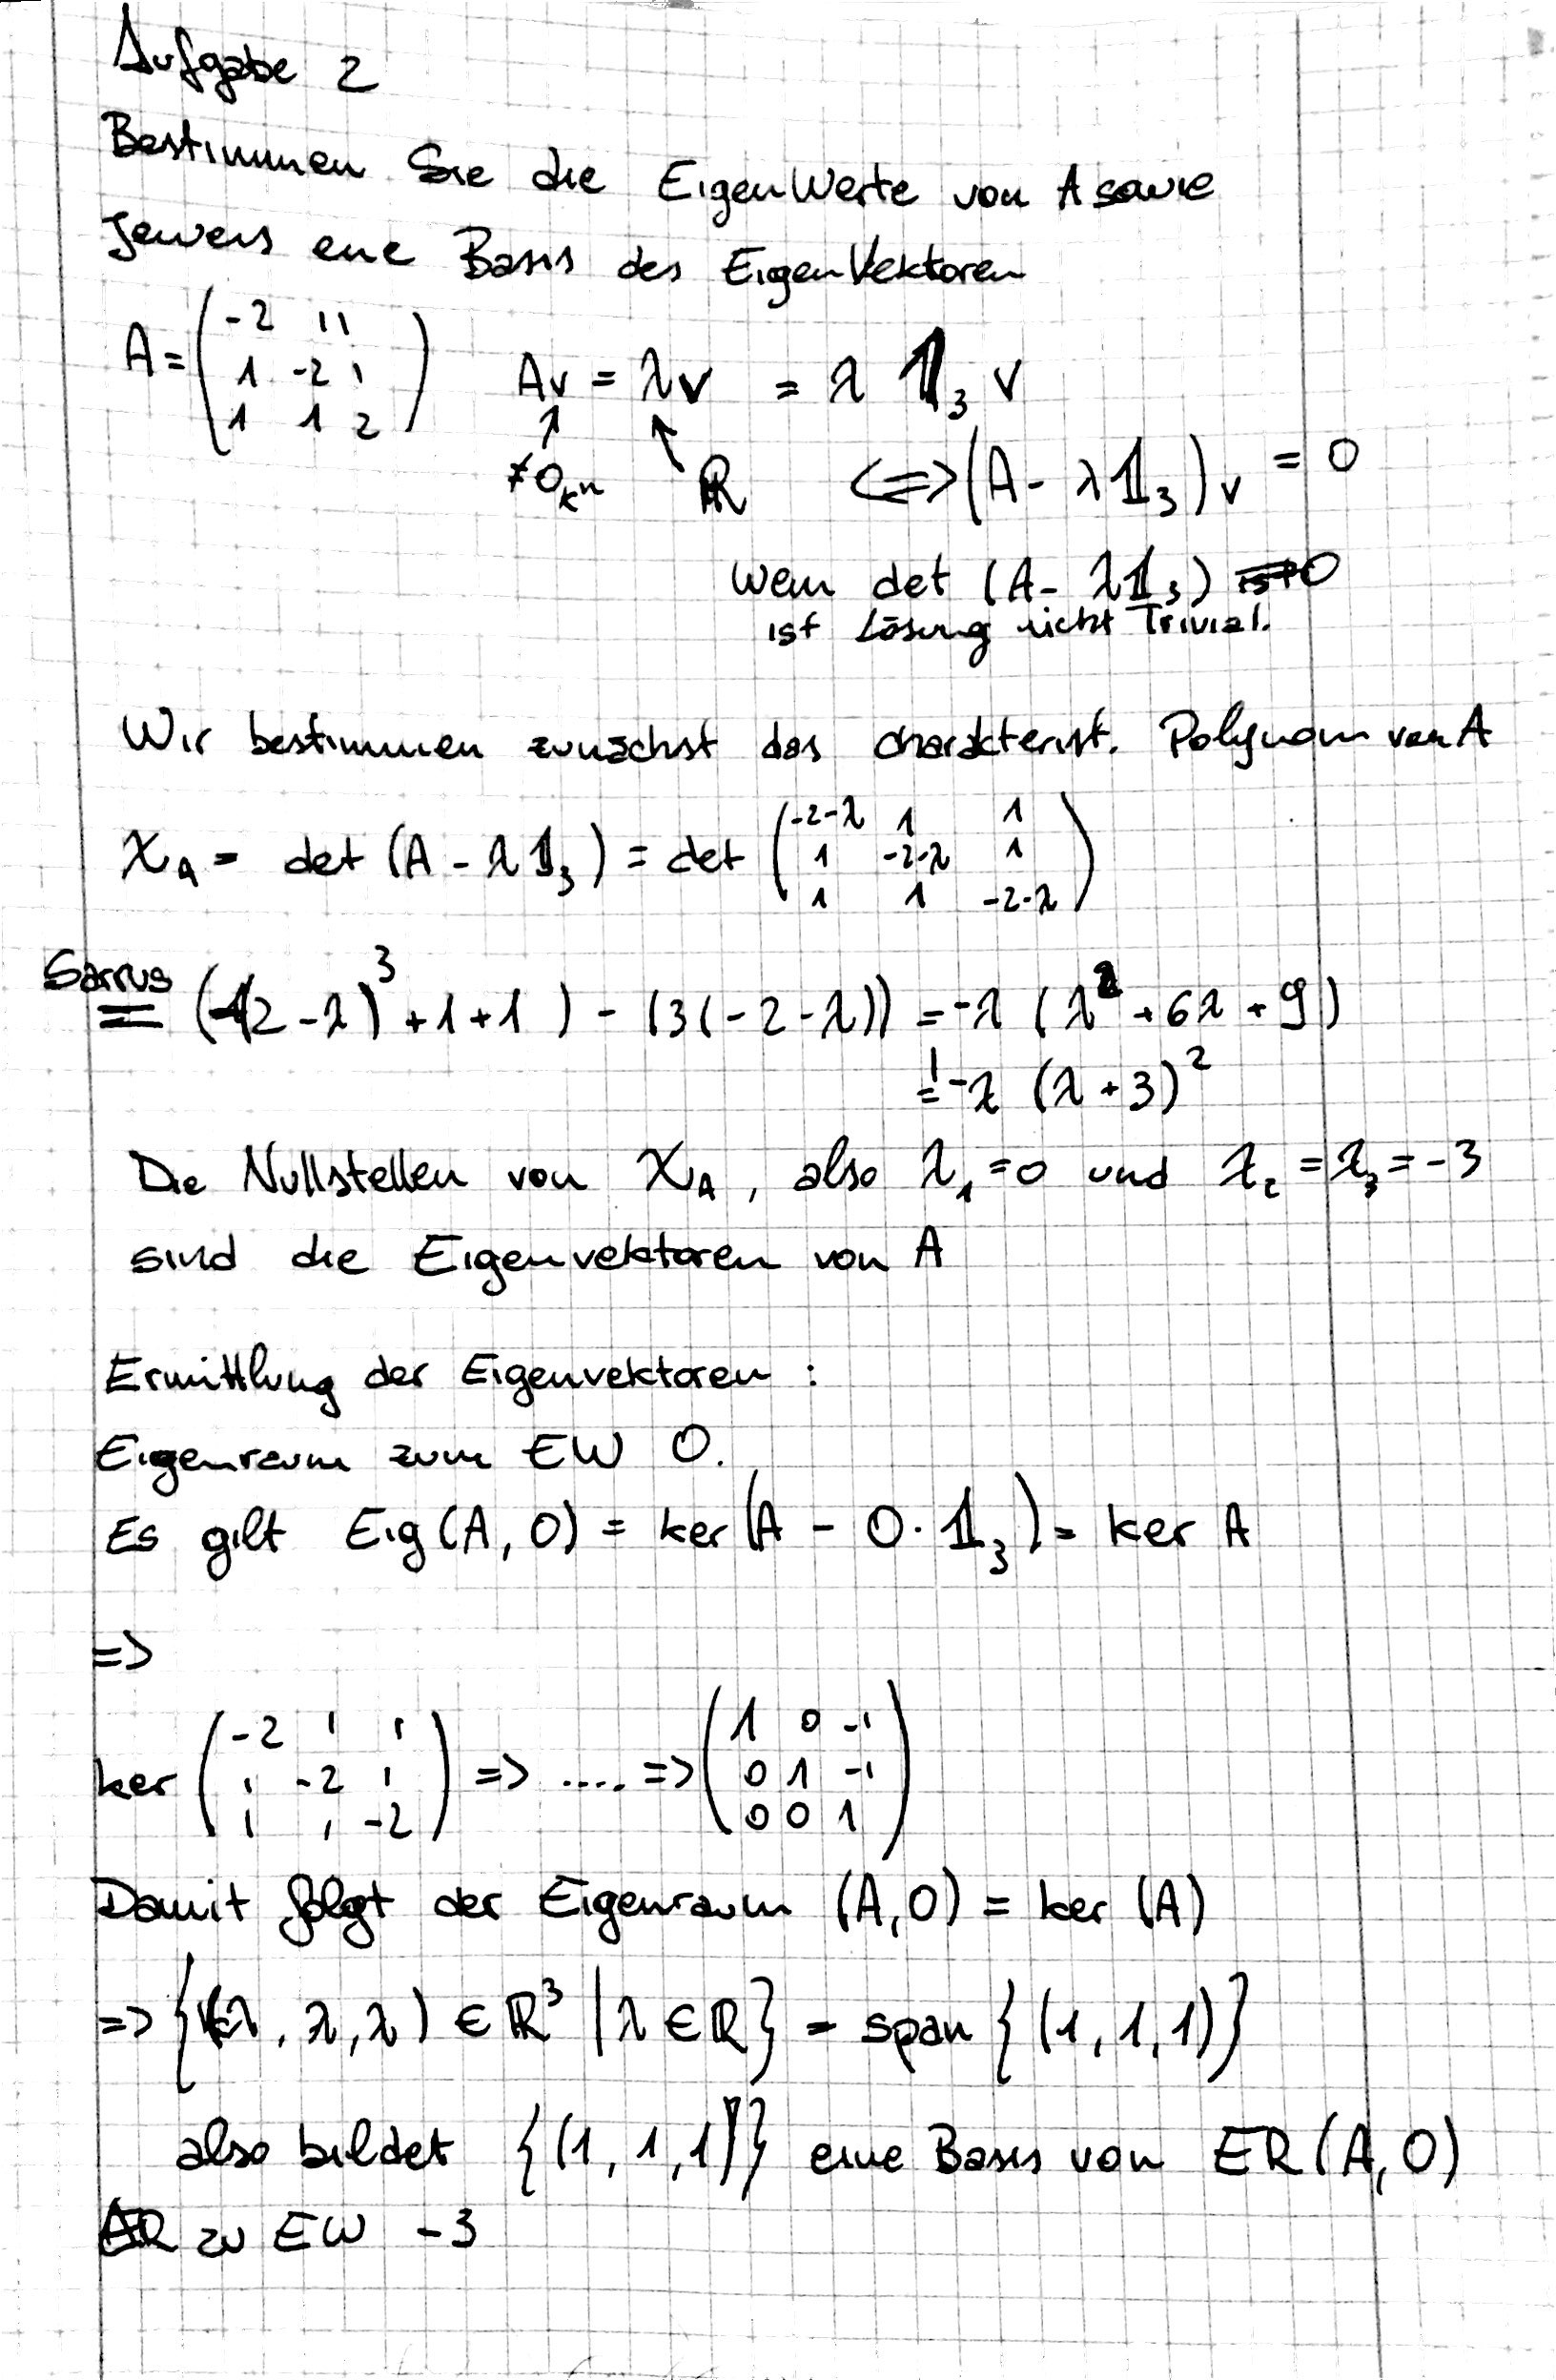 Aufgabe 2
Bestimmen Sie die EigenWerte von A sowie
Jeweils eine Basis des EigenVektoren
A = ( -2 1 1 ; 1 -2 1 ; 1 1 2 )   Av = λv = λ 𝟙₃ v
≠0_kⁿ   ℝ   <=> (A - λ𝟙₃)v = 0
wenn det (A - λ𝟙₃) = 0
ist Lösung nicht Trivial.
Wir bestimmen zunächst das charakterist. Polynom von A
χ_A = det (A - λ𝟙₃) = det ( -2-λ 1 1 ; 1 -2-λ 1 ; 1 1 -2-λ )
Sarrus = ((-2-λ)³ + 1 + 1) - (3(-2-λ)) = -λ (λ² + 6λ + 9)
= -λ (λ + 3)²
Die Nullstellen von χ_A, also λ₁ = 0 und λ₂ = λ₃ = -3
sind die Eigenvektoren von A
Ermittlung der Eigenvektoren :
Eigenraum zum EW 0.
Es gilt Eig(A, 0) = ker(A - 0·𝟙₃) = ker A
=>
ker ( -2 1 1 ; 1 -2 1 ; 1 1 -2 ) => .... => ( 1 0 -1 ; 0 1 -1 ; 0 0 1 )
Damit folgt der Eigenraum (A,0) = ker (A)
=> {(λ, λ, λ) ∈ ℝ³ | λ ∈ ℝ} = span {(1, 1, 1)}
also bildet {(1, 1, 1)} eine Basis von ER(A, 0)
ER zu EW -3